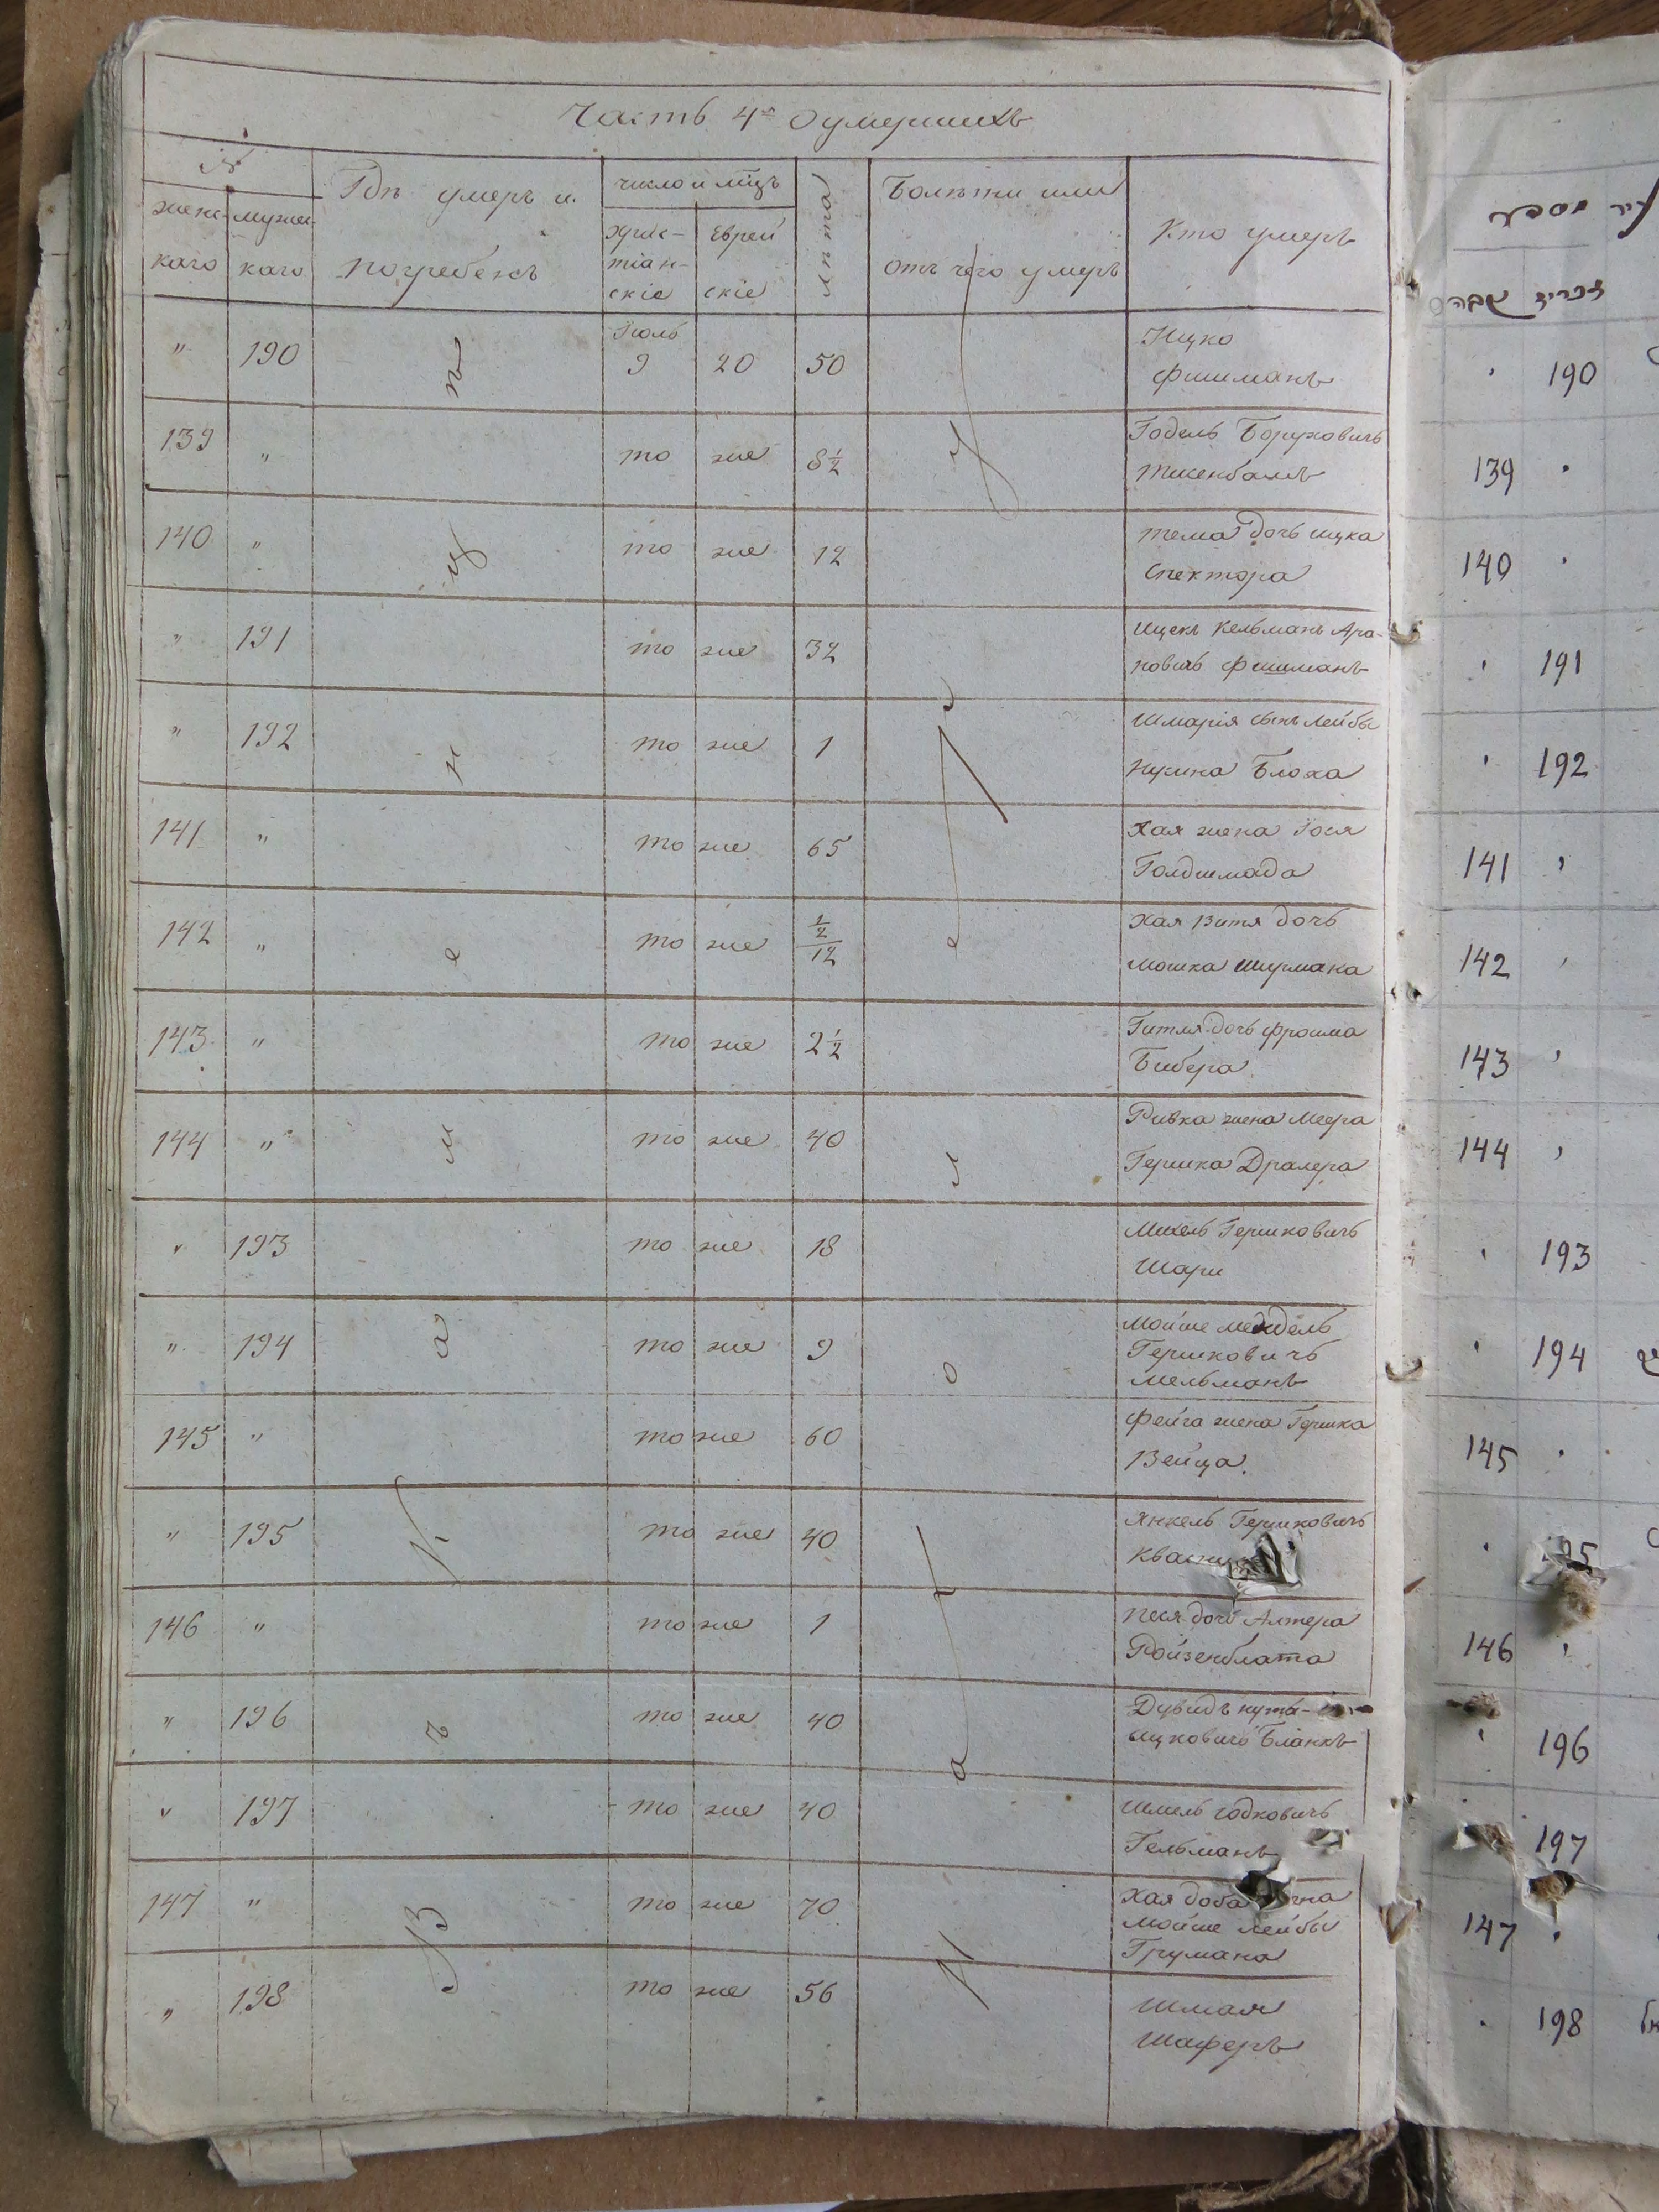 Часть 4я о умершихъ
№
женскаго
мужескаго
Гдѣ умеръ и погребенъ
число и мѣцъ
христіанскіе
Еврейскіе
лѣта
Болѣзни или отъ чего умеръ
Кто умеръ
" 190 Іюль 9 20 50 Ицко
Фишманъ
139 " то же 8½ Годель Боруховичъ
140 " то же 12 тема дочь ицка
спектора
" 191 то же 32 Ицекъ Кельманъ Аро-
новичъ фишманъ
" 192 то же 1 Шмарія сынъ лейбы
Нухима Блоха
141 " то же 65 Хая жена Іося
142 " то же ½/12 Хая Витя дочь
мошка Шурмана
143 " то же 2½ Гитля дочь фроима
Бибера
144 " то же 40 Ривка жена Меера
Гершка
" 193 то же 18 Михель Гершковичъ
" 194 то же 9 Мойше мендель
Гершковичъ
мельманъ
145 " то же 60 Фейга жена Гершка
Вейца.
" 195 то же 40 Янкель Гершковичъ
146 " то же 1 Песя дочь Алтера
Ройзенблата
" 196 то же 40 Дувидъ нута-
ицковичъ Бланкъ
" 197 то же 40 Шмель
Гельманъ
147 " то же 70 Хая доба
Мойше лейбы
Грумана
" 198 то же 56 Шмая
Шаферъ
Въ Каменцѣ
Холера
' 190
139 '
140 '
' 191
' 192
141 '
142 '
143 '
144 '
' 193
' 194
145 '
' 195
146 '
' 196
197
147 '
' 198